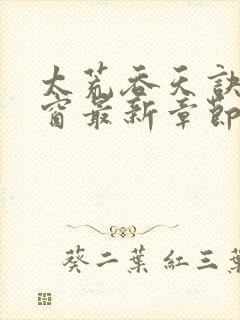 大荒吞天訣
窗最新章節
葵二葉 紅三葉